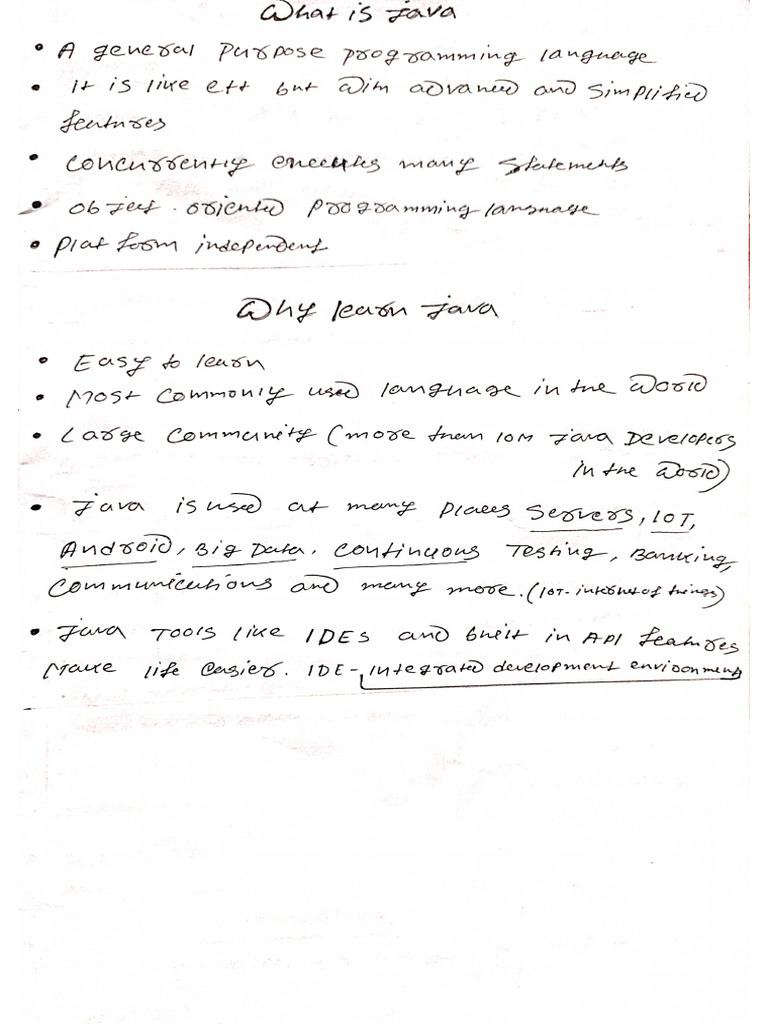 What is Java
• A general purpose programming language
• It is like c++ but with advanced and simplified
features
• Concurrently executes many statements
• Object-oriented programming language
• Platform independent
Why learn Java
• Easy to learn
• Most commonly used language in the world
• Large community (more than 10M Java Developers
in the world)
• Java is used at many places Servers, IOT,
Android, Big Data, Continuous Testing, Banking,
Communications and many more. (IOT- internet of things)
• Java Tools like IDEs and built in API features
Make life easier. IDE- integrated development environment